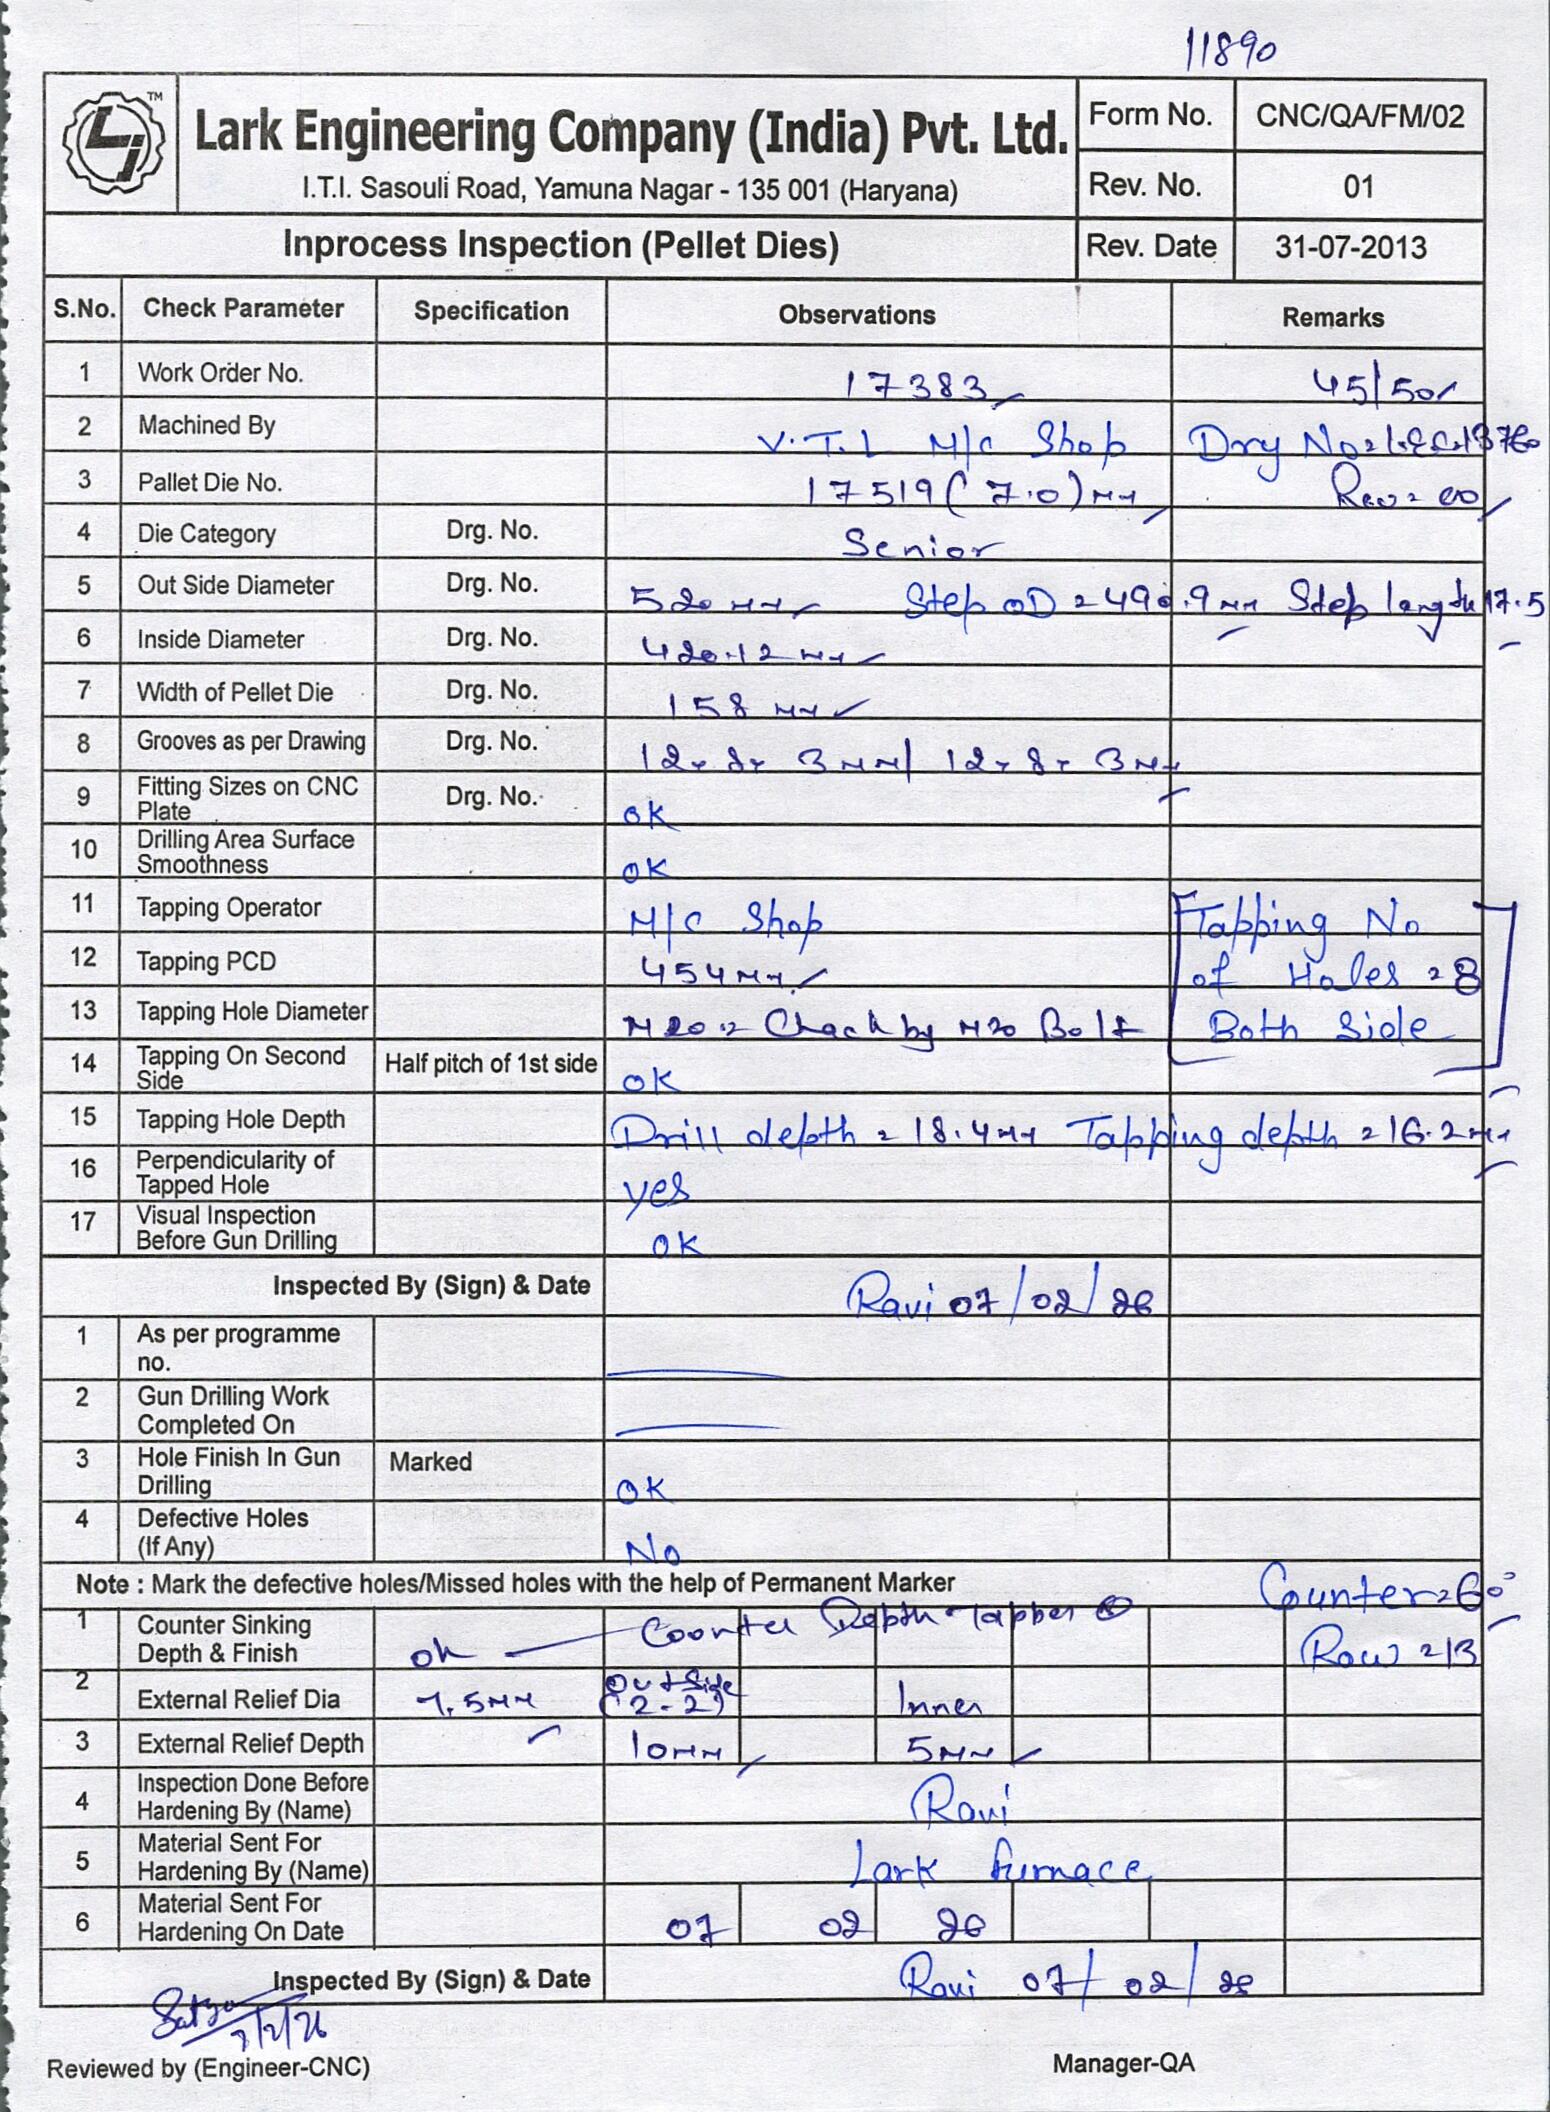 11890
TM
Lark Engineering Company (India) Pvt. Ltd.
I.T.I. Sasouli Road, Yamuna Nagar - 135 001 (Haryana)
Form No. CNC/QA/FM/02
Rev. No. 01
Inprocess Inspection (Pellet Dies)
Rev. Date 31-07-2013
S.No. Check Parameter Specification Observations Remarks
1 Work Order No. 17383 45/50
2 Machined By V.T.L M/C Shop Dry No=
3 Pallet Die No. 17519 (7.0) MM Rev = 00
4 Die Category Drg. No. Senior
5 Out Side Diameter Drg. No. 520 MM Step OD = 490.9 MM Step length 17.5
6 Inside Diameter Drg. No. 420.12 MM
7 Width of Pellet Die Drg. No. 158 MM
8 Grooves as per Drawing Drg. No. 12x8x 3MM/ 12x8x 3MM
9 Fitting Sizes on CNC Plate Drg. No. OK
10 Drilling Area Surface Smoothness OK
11 Tapping Operator M/C Shop Tapping No
12 Tapping PCD 454MM of Holes = 8
13 Tapping Hole Diameter M20 = Chack by M20 Bolt Both Side
14 Tapping On Second Side Half pitch of 1st side OK
15 Tapping Hole Depth Drill depth = 18.4MM Tapping depth = 16.2MM
16 Perpendicularity of Tapped Hole yes
17 Visual Inspection Before Gun Drilling OK
Inspected By (Sign) & Date Ravi 07/02/26
1 As per programme no.
2 Gun Drilling Work Completed On
3 Hole Finish In Gun Drilling Marked OK
4 Defective Holes (If Any) No
Note : Mark the defective holes/Missed holes with the help of Permanent Marker Counter=60°
1 Counter Sinking Depth & Finish OK Coonter Depth Tapper Row = 13
2 External Relief Dia 7.5MM Out Side (2-2) Inner
3 External Relief Depth 10MM 5MM
4 Inspection Done Before Hardening By (Name) Ravi
5 Material Sent For Hardening By (Name) Lark Furnace
6 Material Sent For Hardening On Date 07 02 26
Inspected By (Sign) & Date Ravi 07/02/26
7/2/26
Reviewed by (Engineer-CNC) Manager-QA